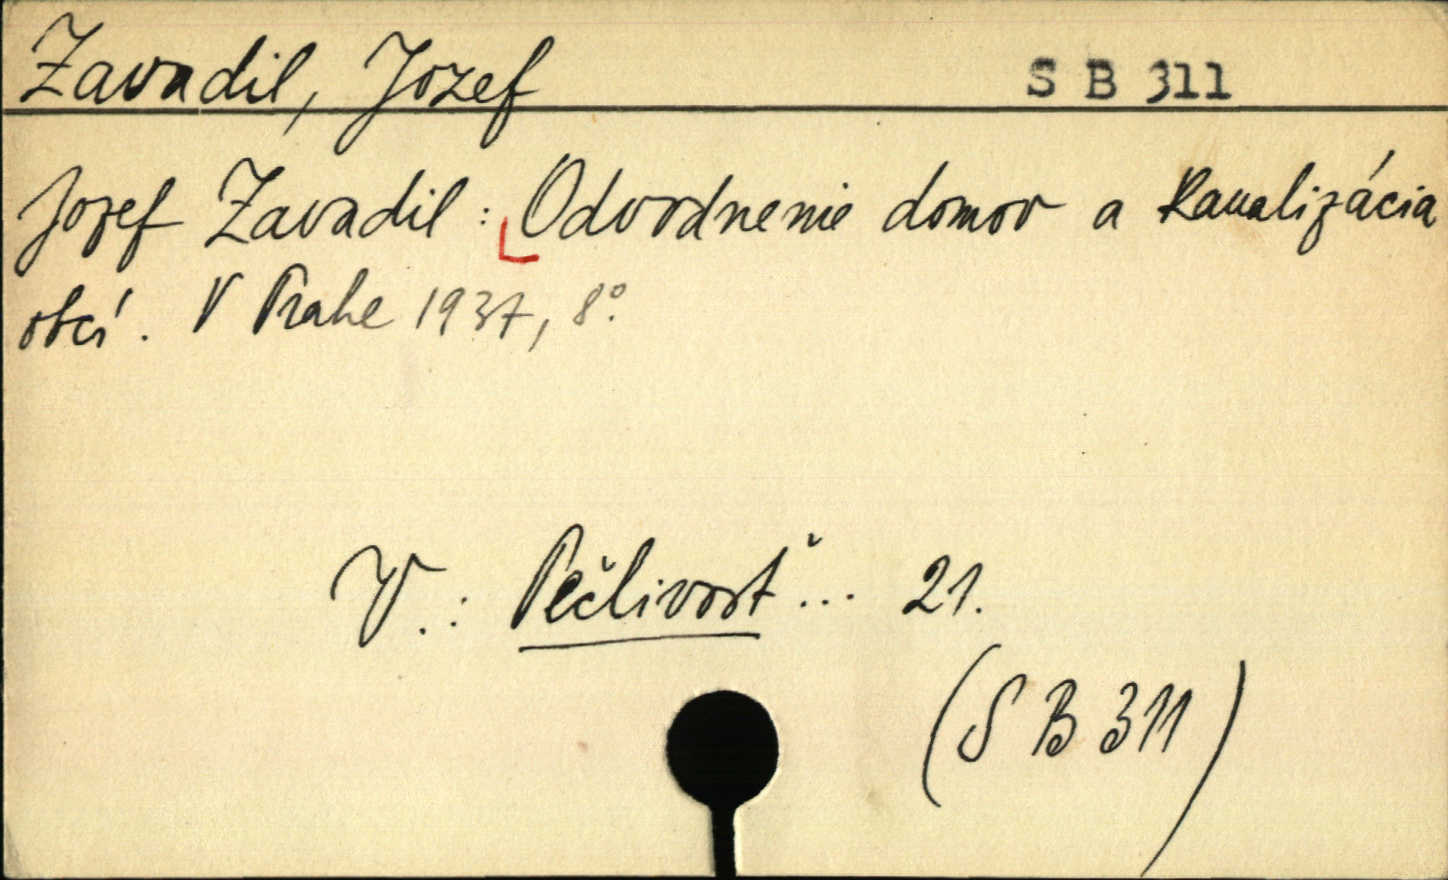 Zavadil, Jozef S B 311
Jozef Zavadil: Odvodnenie domov a kanalizácia
obcí. V Prahe 1937, 8°.
V.: Pečlivosť ... 21.
(S B 311)